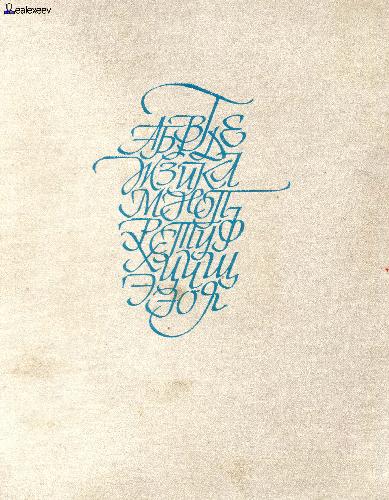 ealexeev
АБВГДЕ
ЖЗИКЛ
МНОП
РСТУФ
ХЦЧШ
ЭЮЯ